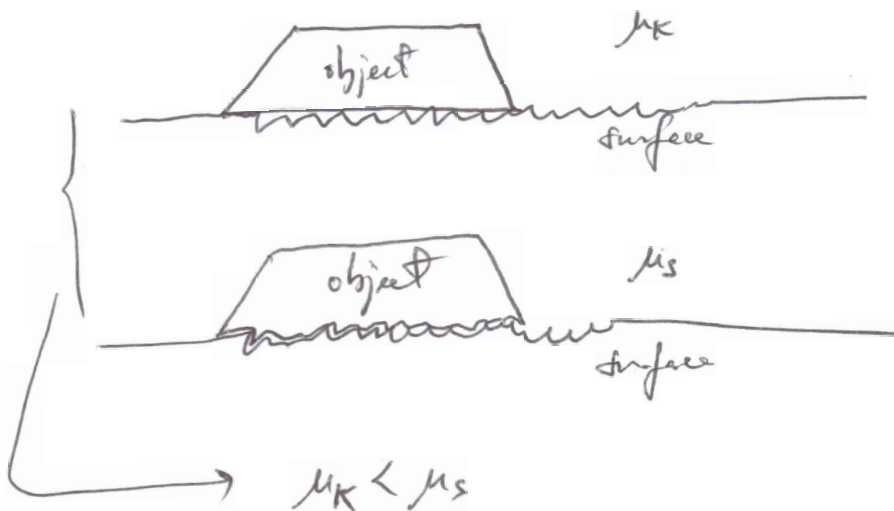 object
μK
surface
object
μs
surface
μK < μs